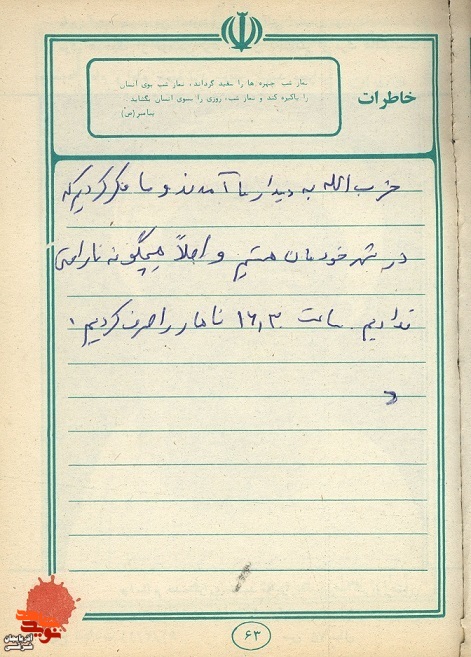 خاطرات
نماز شب چهره ها را سفید گرداند، نماز شب بوی انسان
را پاکیزه کند و نماز شب، روزی را بسوی انسان بکشاند
پیامبر (ص)
حزب الله به دیدار ما آمدند و ما فکر کردیم که
در شهر خودمان هستیم و اصلاً هیچگونه ناراحتی
نداریم. ساعت ۱۶,۳۰ ناهار را صرف کردیم.
۶۳
نوید
آذربایجان